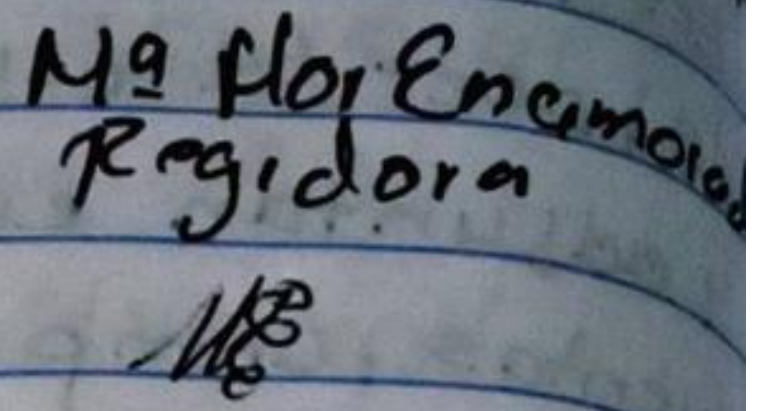 Mª Flor Enamorad
Regidora